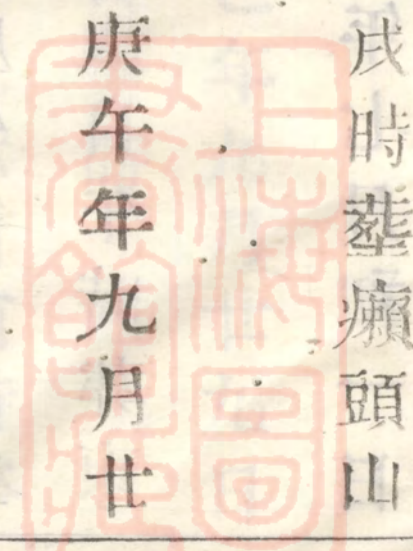 戌時塟癩頭山
庚午年九月廿
上海圖書館藏